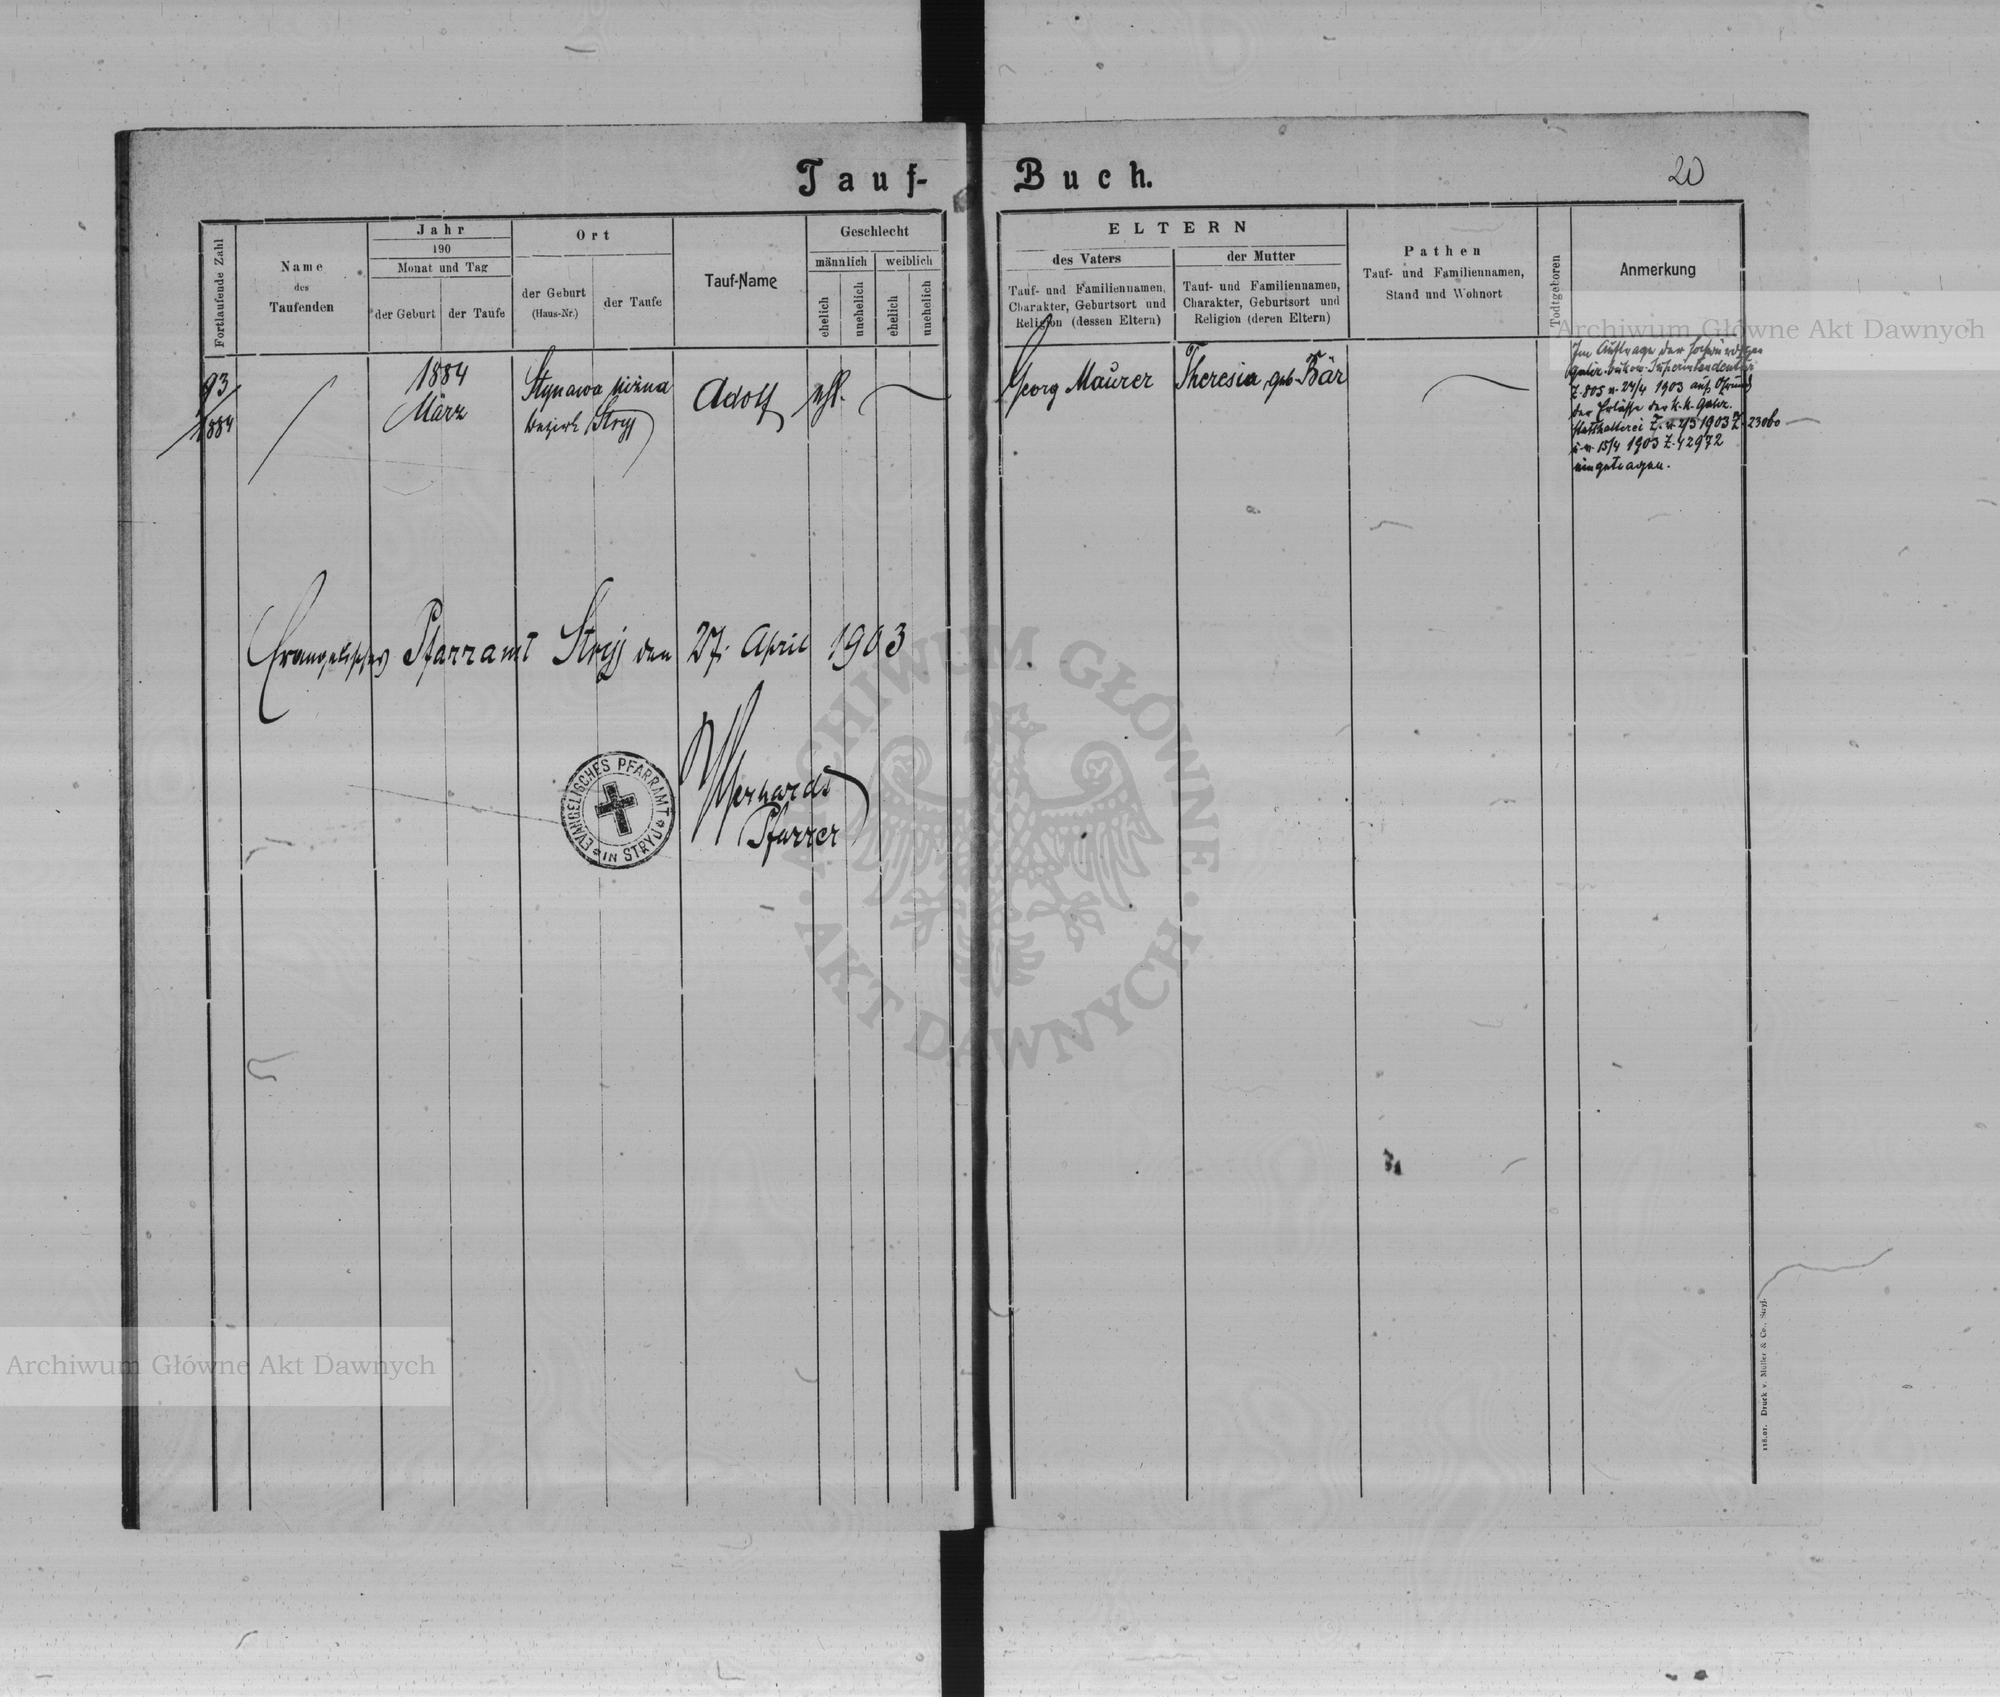 Tauf-Buch.
20
Fortlaufende Zahl
Name
des
Taufenden
Jahr
190
Monat und Tag
der Geburt
der Taufe
Ort
der Geburt
(Haus-Nr.)
der Taufe
Tauf-Name
Geschlecht
männlich
weiblich
ehelich
unehelich
ehelich
unehelich
ELTERN
des Vaters
Tauf- und Familiennamen,
Charakter, Geburtsort und
Religion (dessen Eltern)
der Mutter
Tauf- und Familiennamen,
Charakter, Geburtsort und
Religion (deren Eltern)
Pathen
Tauf- und Familiennamen,
Stand und Wohnort
Todtgeboren
Anmerkung
93
1884
1884
März
Stynawa niżna
Bezirk Stryj
Adolf
ehl.
Georg Maurer
Theresia, geb. Bär
Im Auftrage der hochwürdigen
galiz. bukow. Superintendentur
Z. 805 v. 24/4 1903 auf Grund
der Erlässe der k. k. galiz.
Statthalterei Z. v. 2/3 1903 Z. 23060
u. v. 15/4 1903 Z. 42972
eingetragen.
Evangelisches Pfarramt Stryj den 27. April 1903
EVANGELISCHES PFARRAMT IN STRYJ
Pfarrer
118.01. Druck v. Müller & Co., Stryj.
Archiwum Główne Akt Dawnych
Archiwum Główne Akt Dawnych
ARCHIWUM GŁÓWNE AKT DAWNYCH